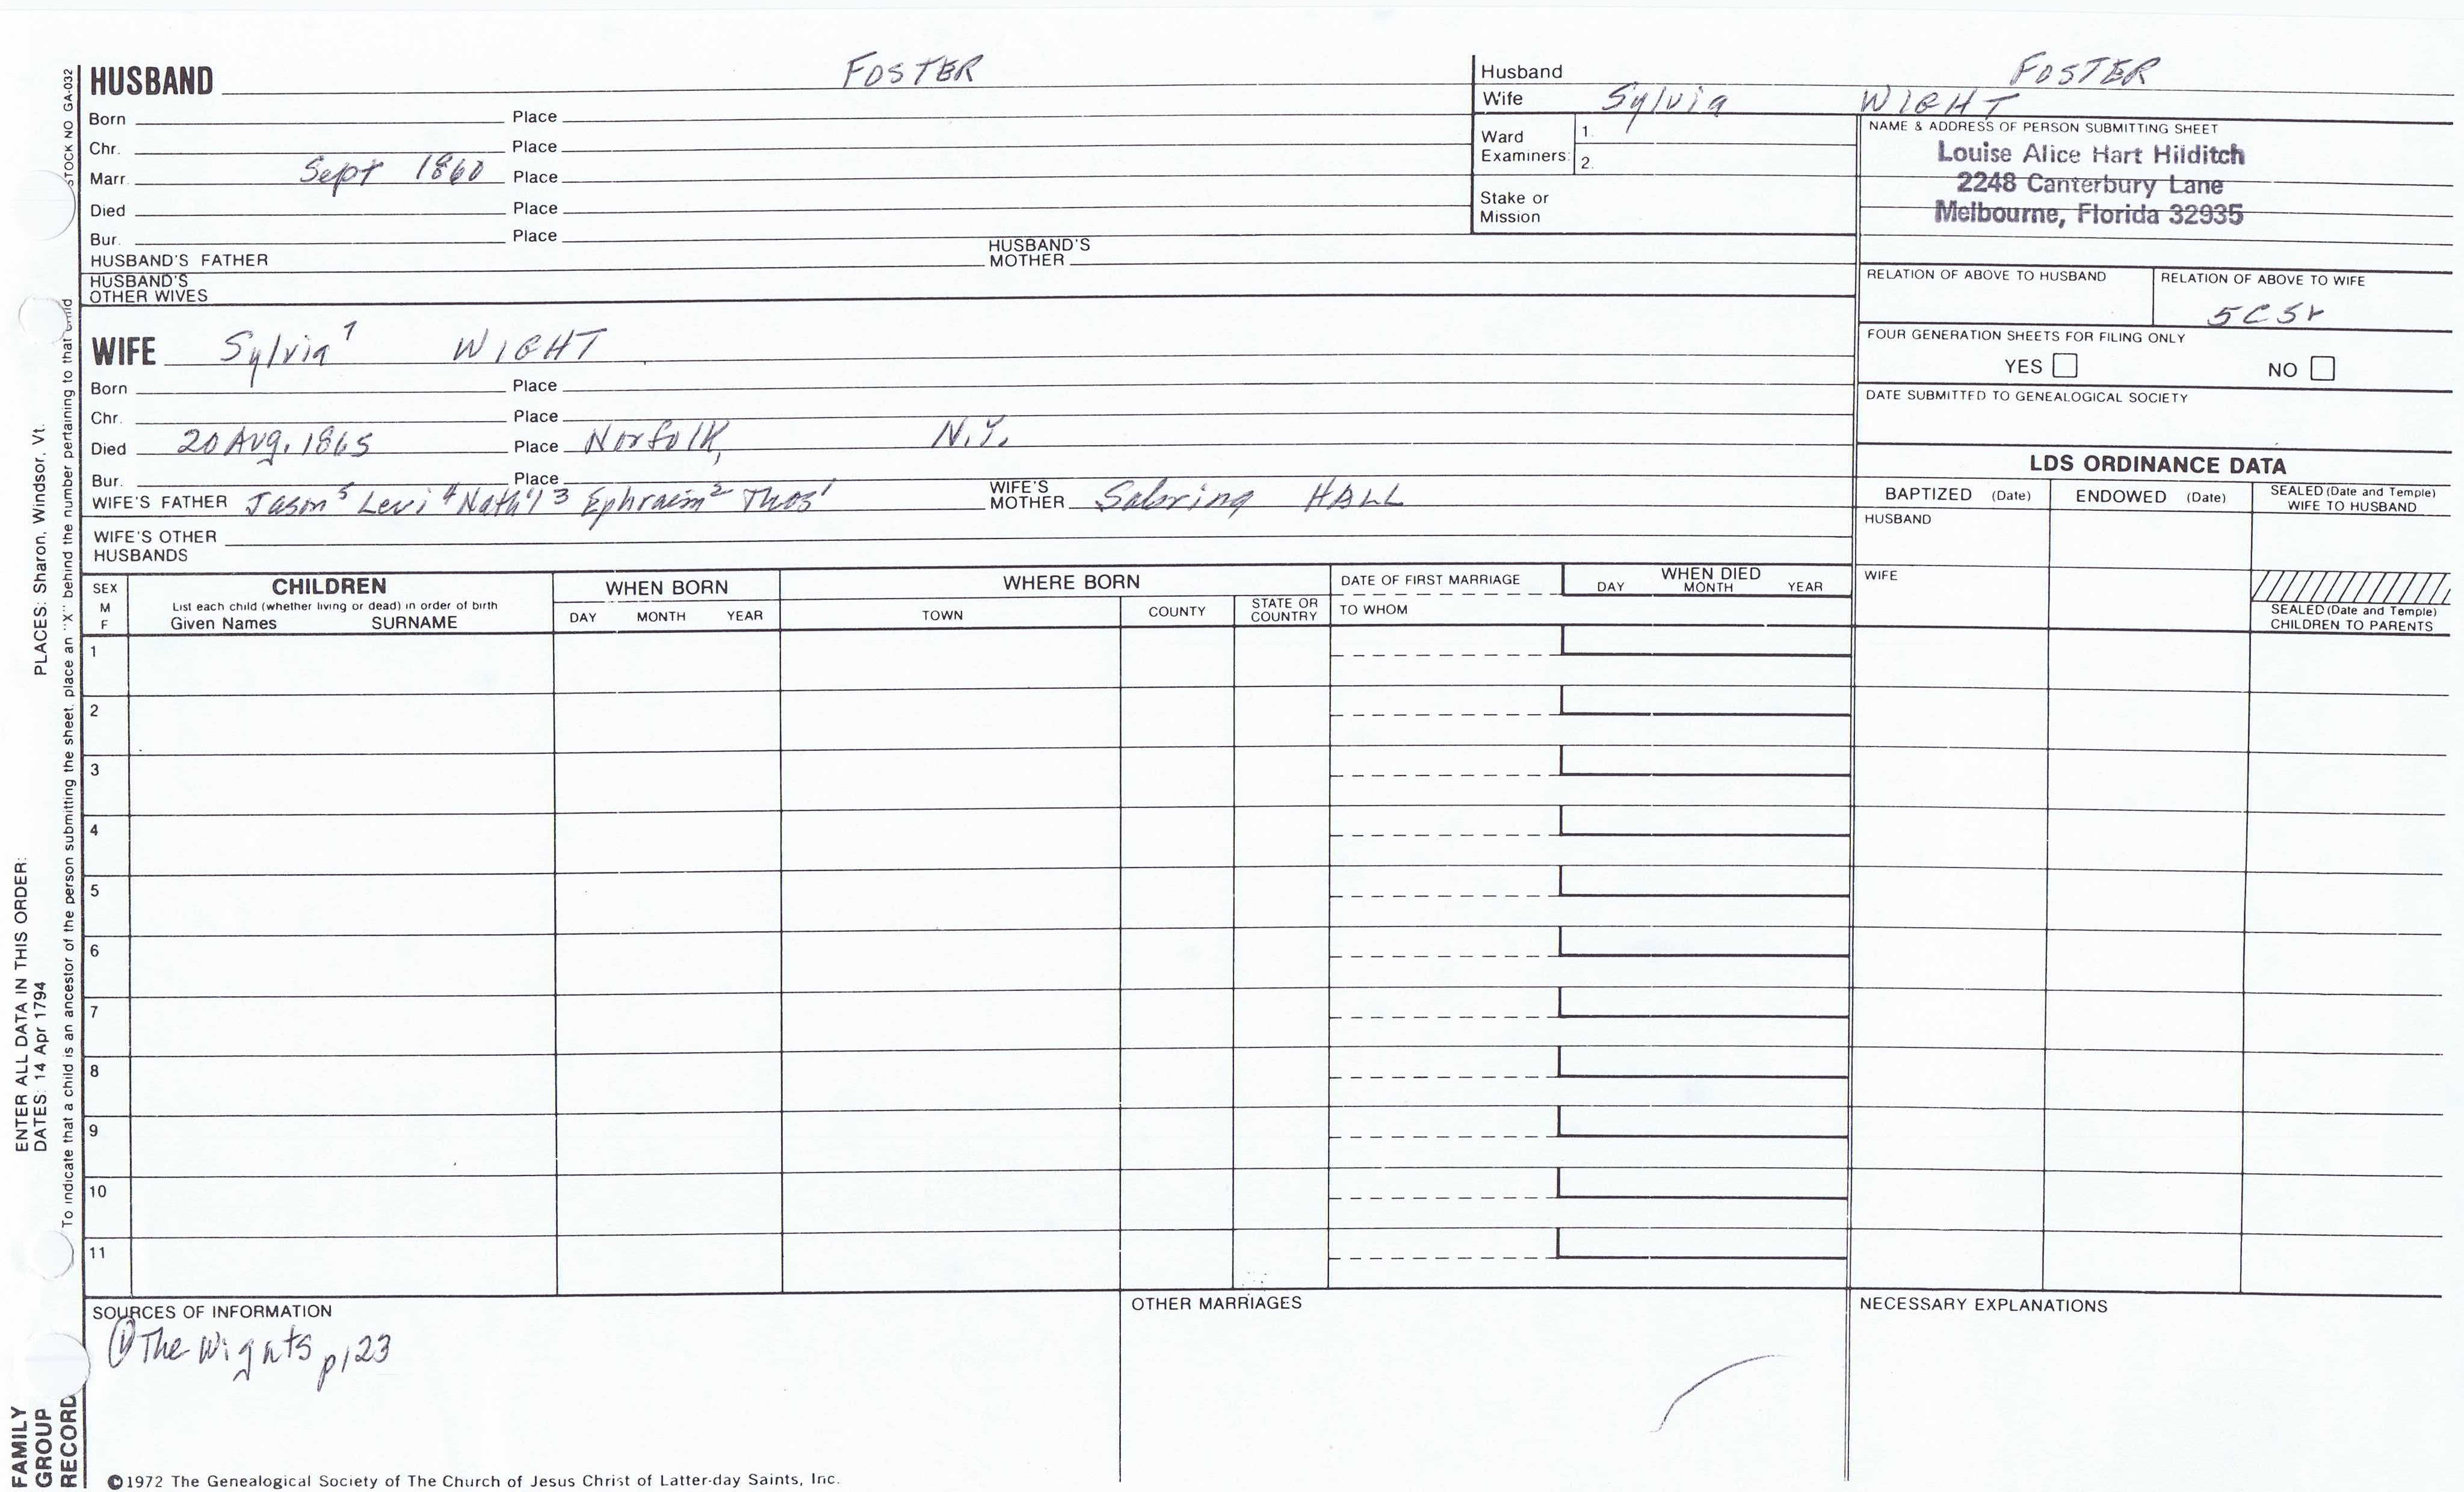 HUSBAND FOSTER
Born Place
Chr. Place
Marr. Sept 1860 Place
Died Place
Bur. Place
HUSBAND'S FATHER HUSBAND'S MOTHER
HUSBAND'S OTHER WIVES
Husband FOSTER
Wife Sylvia WIGHT
Ward Examiners: 1. 2.
Stake or Mission
NAME & ADDRESS OF PERSON SUBMITTING SHEET
Louise Alice Hart Hilditch
2248 Canterbury Lane
Melbourne, Florida 32935
RELATION OF ABOVE TO HUSBAND
RELATION OF ABOVE TO WIFE
5C5r
FOUR GENERATION SHEETS FOR FILING ONLY
YES NO
DATE SUBMITTED TO GENEALOGICAL SOCIETY
WIFE Sylvia WIGHT
Born Place
Chr. Place
Died 20 Aug. 1865 Place Norfolk, N.Y.
Bur. Place
WIFE'S FATHER Jason⁵ Levi⁴ Nath'l³ Ephraim² Thos¹ WIFE'S MOTHER Sabrina HALL
WIFE'S OTHER HUSBANDS
LDS ORDINANCE DATA
BAPTIZED (Date) ENDOWED (Date) SEALED (Date and Temple) WIFE TO HUSBAND
HUSBAND
WIFE
SEALED (Date and Temple) CHILDREN TO PARENTS
SEX M F
CHILDREN
List each child (whether living or dead) in order of birth
Given Names SURNAME
WHEN BORN
DAY MONTH YEAR
WHERE BORN
TOWN COUNTY STATE OR COUNTRY
DATE OF FIRST MARRIAGE
TO WHOM
WHEN DIED
DAY MONTH YEAR
1
2
3
4
5
6
7
8
9
10
11
SOURCES OF INFORMATION
① The Wights p123
OTHER MARRIAGES
NECESSARY EXPLANATIONS
©1972 The Genealogical Society of The Church of Jesus Christ of Latter-day Saints, Inc.
STOCK NO GA-032
To indicate that a child is an ancestor of the person submitting the sheet, place an "X" behind the number pertaining to that child
ENTER ALL DATA IN THIS ORDER:
DATES: 14 Apr 1794 PLACES: Sharon, Windsor, Vt.
FAMILY
GROUP
RECORD